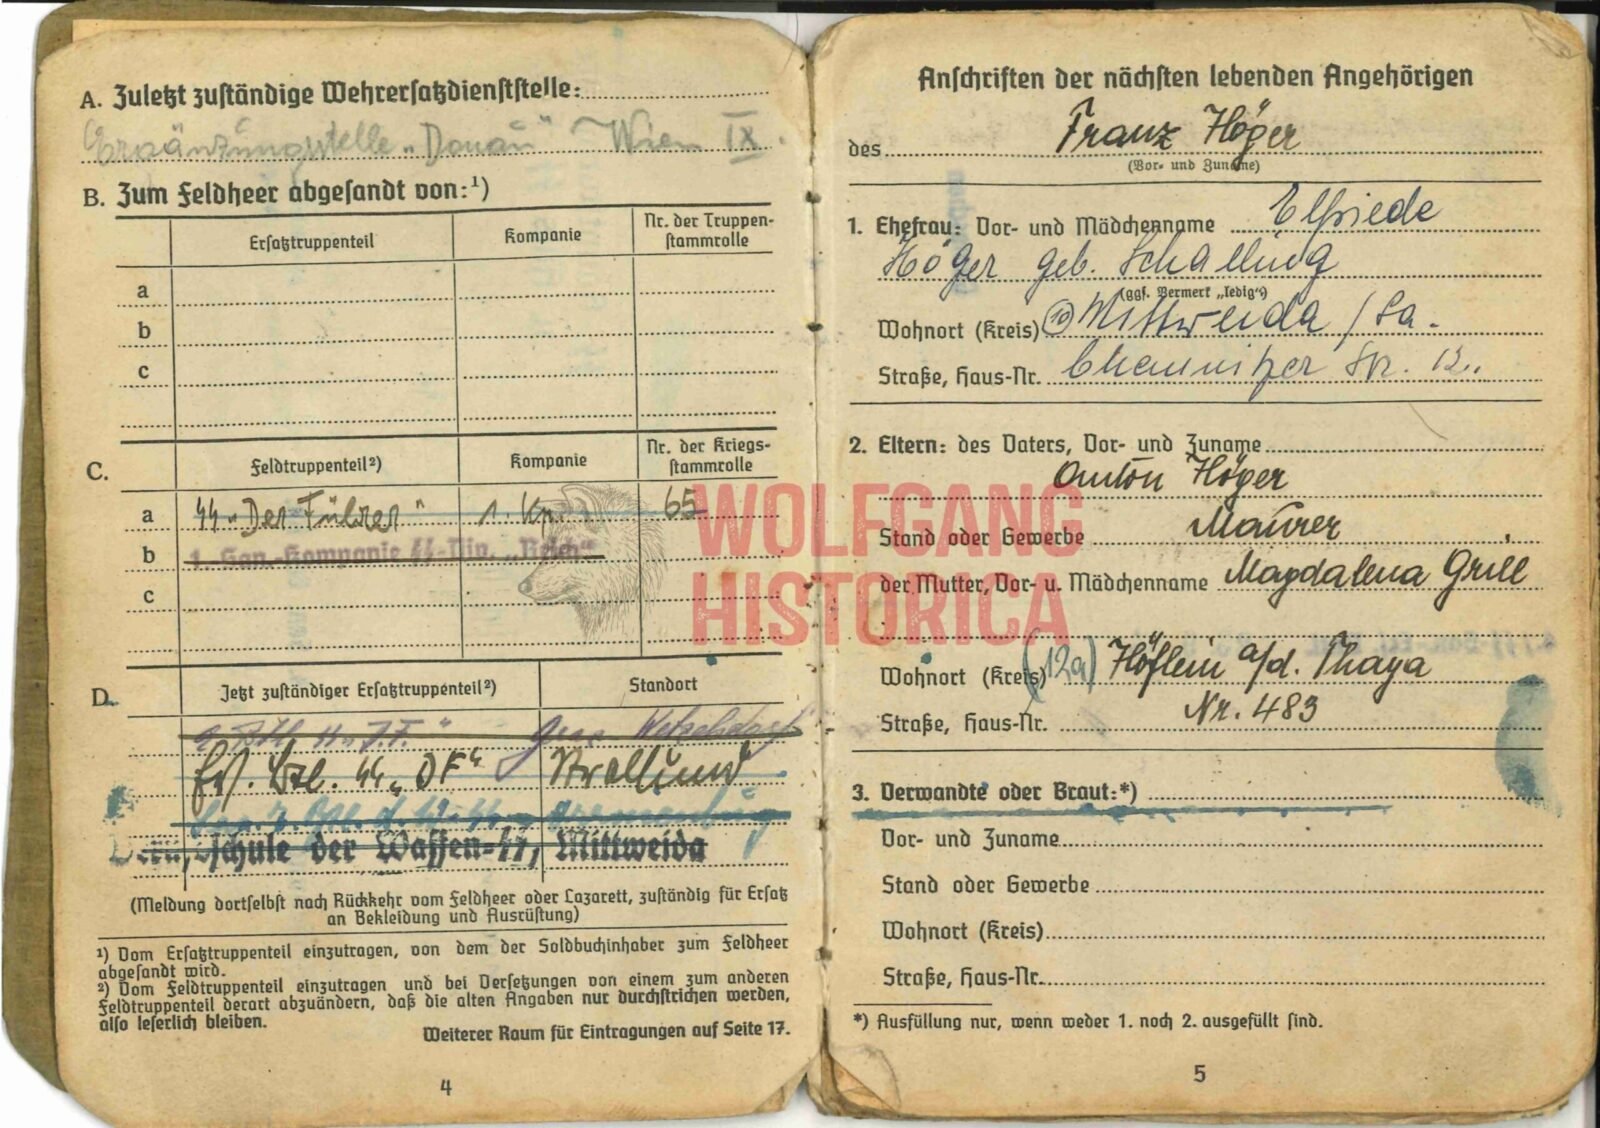 A. Zuletzt zuständige Wehrersatzdienststelle:
Ergänzungsstelle „Donau“ Wien IX.
B. Zum Feldheer abgesandt von:¹)
Ersatztruppenteil Kompanie Nr. der Truppen-
stammrolle
a
b
c
C. Feldtruppenteil²) Kompanie Nr. der Kriegs-
stammrolle
a ᛋᛋ „Der Führer“ 1. Kp. 65
b 1. San.-Kompanie ᛋᛋ-Div. „Reich“
c
D. Jetzt zuständiger Ersatztruppenteil²) Standort
Graz Wetzelsdorf
Ers. Btl. ᛋᛋ „DF“ Stralsund
schule der Waffen-ᛋᛋ, Mittweida
(Meldung dortselbst nach Rückkehr vom Feldheer oder Lazarett, zuständig für Ersatz
an Bekleidung und Ausrüstung)
¹) Vom Ersatztruppenteil einzutragen, von dem der Soldbuchinhaber zum Feldheer
abgesandt wird.
²) Vom Feldtruppenteil einzutragen und bei Versetzungen von einem zum anderen
Feldtruppenteil derart abzuändern, daß die alten Angaben nur durchstrichen werden,
also leserlich bleiben.
Weiterer Raum für Eintragungen auf Seite 17.
4
Anschriften der nächsten lebenden Angehörigen
des Franz Höger
(Vor- und Zuname)
1. Ehefrau: Vor- und Mädchenname Elfriede
Höger geb. Schelling
(ggf. Vermerk „ledig“)
Wohnort (Kreis) (10) Mittweida / Sa.
Straße, Haus-Nr. Chemnitzer Str. 12.
2. Eltern: des Vaters, Vor- und Zuname
Anton Höger
Stand oder Gewerbe Maurer
der Mutter, Vor- u. Mädchenname Magdalena Grill
Wohnort (Kreis) (12a) Höflein a/d. Thaya
Straße, Haus-Nr. Nr. 483
3. Verwandte oder Braut:*)
Vor- und Zuname
Stand oder Gewerbe
Wohnort (Kreis)
Straße, Haus-Nr.
*) Ausfüllung nur, wenn weder 1. noch 2. ausgefüllt sind.
5
WOLFGANG
HISTORICA